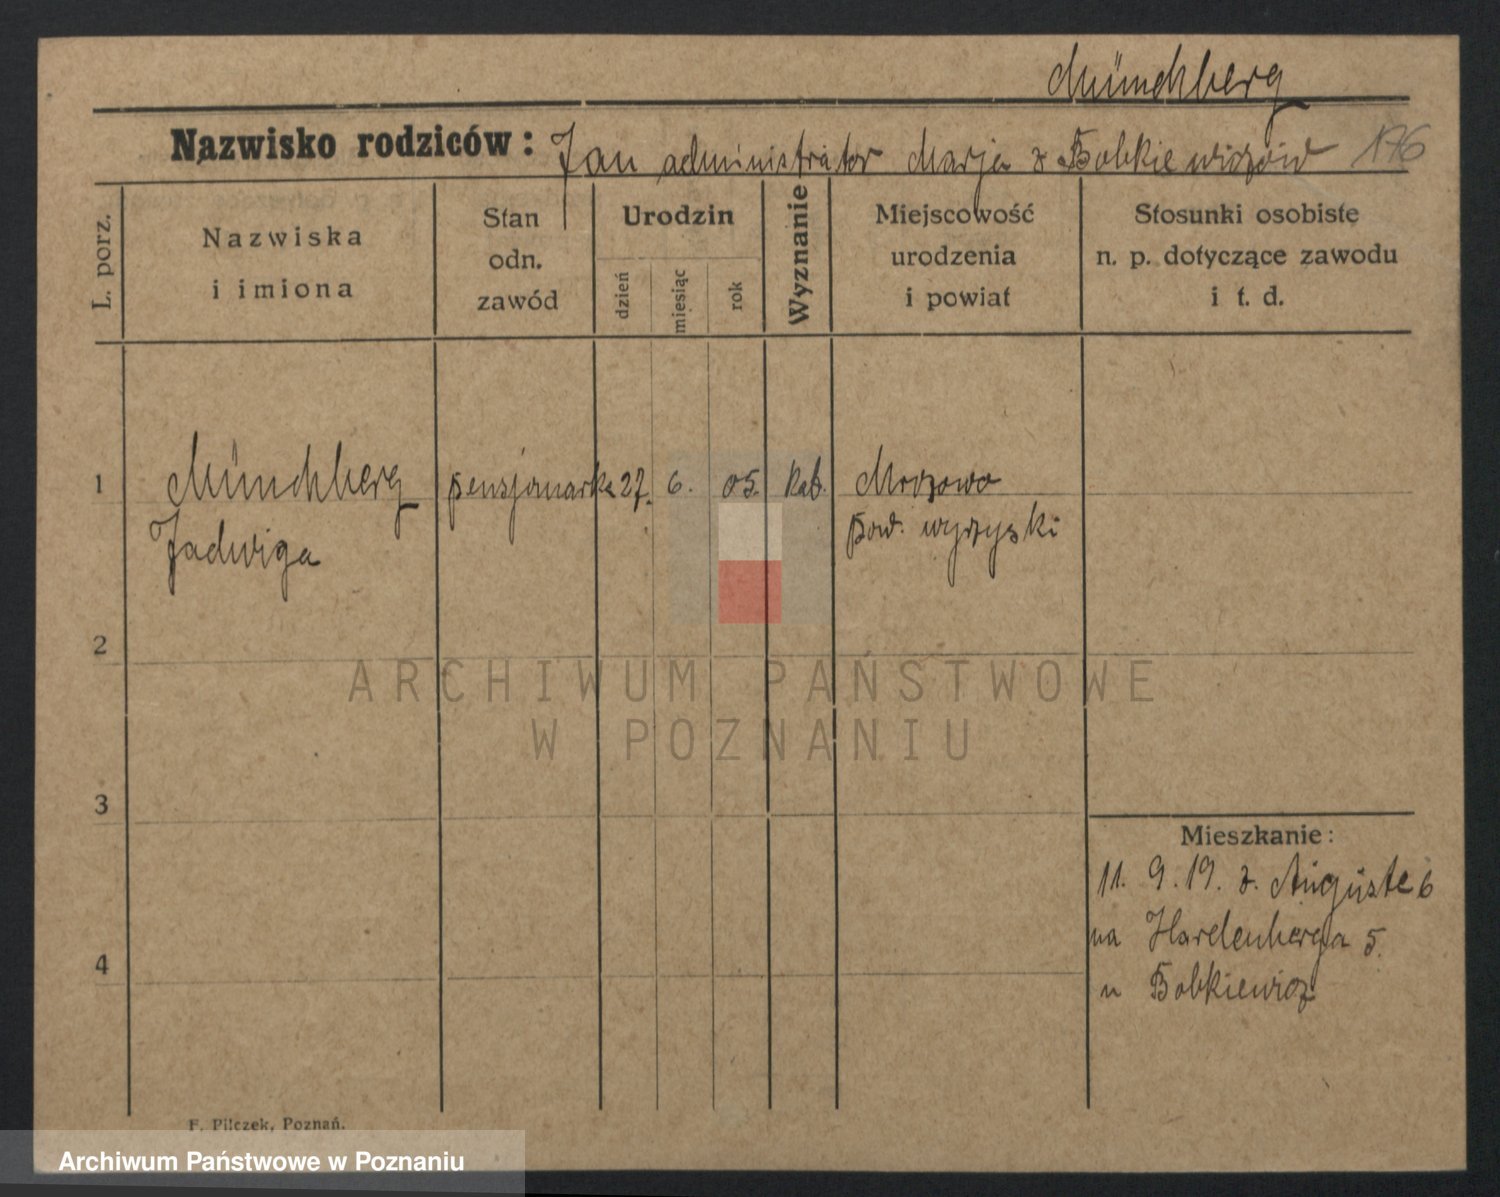 Münchberg
Nazwisko rodziców: Jan administrator Marja z Bobkiewiczów 176
L. porz.
Nazwiska
i imiona
Stan
odn.
zawód
Urodzin
dzień
miesiąc
rok
Wyznanie
Miejscowość
urodzenia
i powiat
Stosunki osobiste
n. p. dotyczące zawodu
i t. d.
1 Münchberg pensjonarka 27. 6. 05. kat. Mrozowo
Jadwiga pow. wyrzyski
2
ARCHIWUM PAŃSTWOWE
W POZNANIU
3
Mieszkanie:
11. 9. 19. z. Auguste 6
na Hardenberga 5.
4
u Bobkiewicz
F. Pilczek, Poznań.
Archiwum Państwowe w Poznaniu